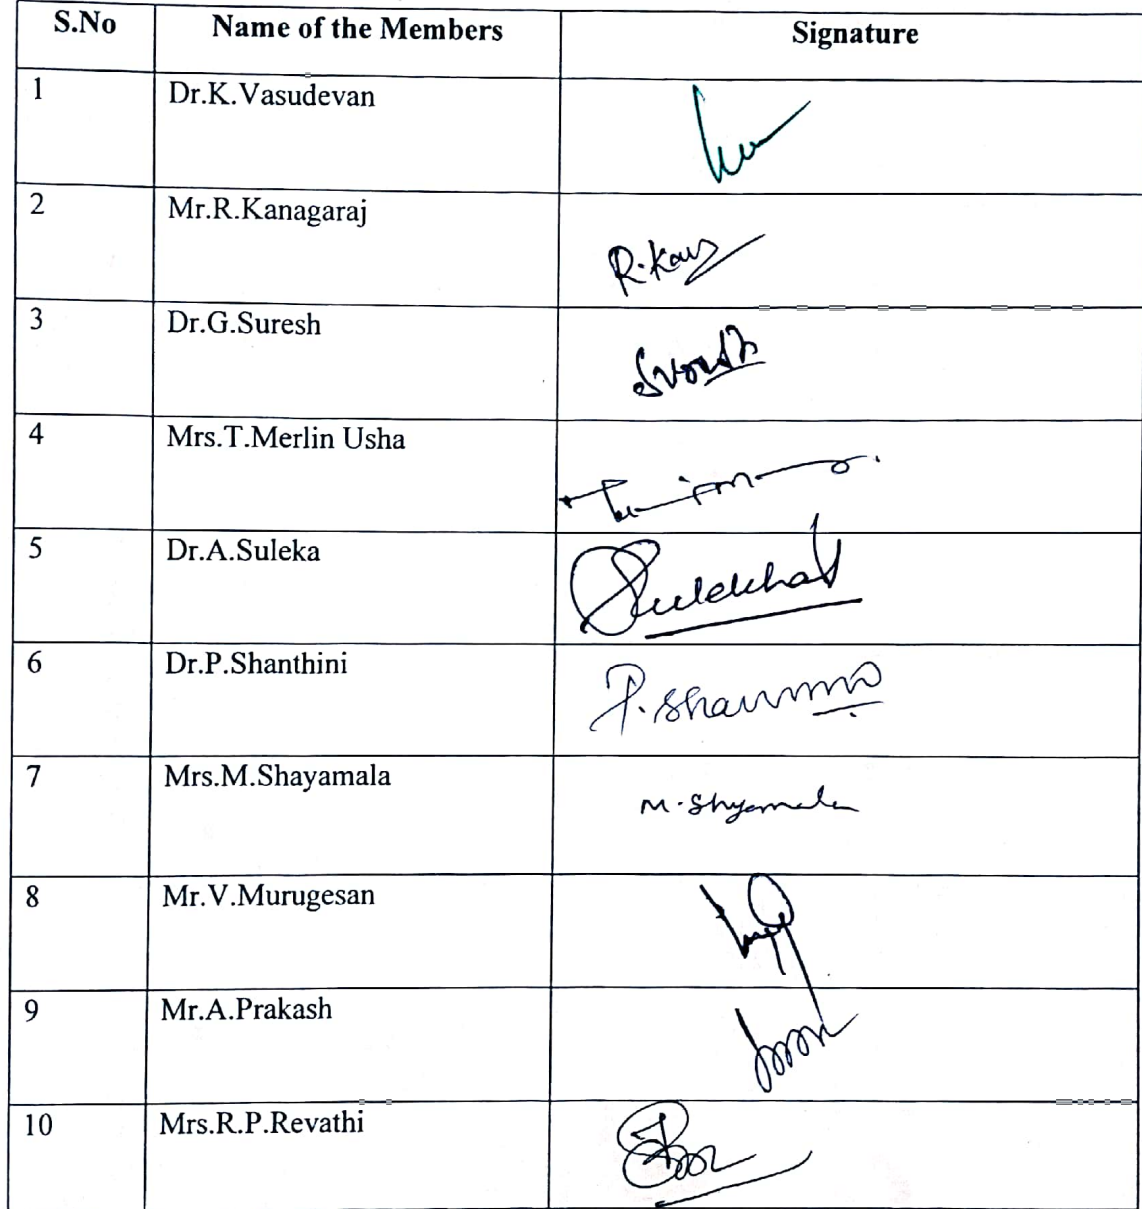 S.No Name of the Members Signature
1 Dr.K.Vasudevan
2 Mr.R.Kanagaraj
R.Kan
3 Dr.G.Suresh
4 Mrs.T.Merlin Usha
5 Dr.A.Suleka
Sulekha
6 Dr.P.Shanthini
7 Mrs.M.Shayamala
M.Shyamala
8 Mr.V.Murugesan
9 Mr.A.Prakash
10 Mrs.R.P.Revathi